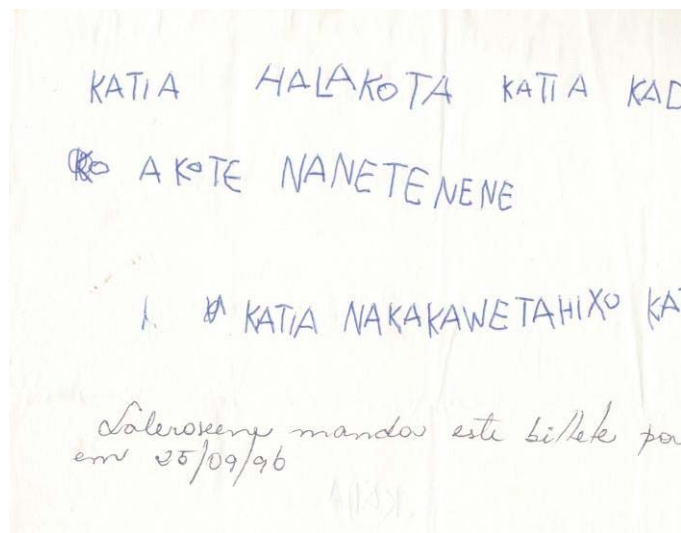 KATIA HALAKOTA KATIA KAD
KO AKOTE NANETENENE
KATIA NAKAKAWETAHIXO KAT
manda este bilhete pa
em 25/09/96